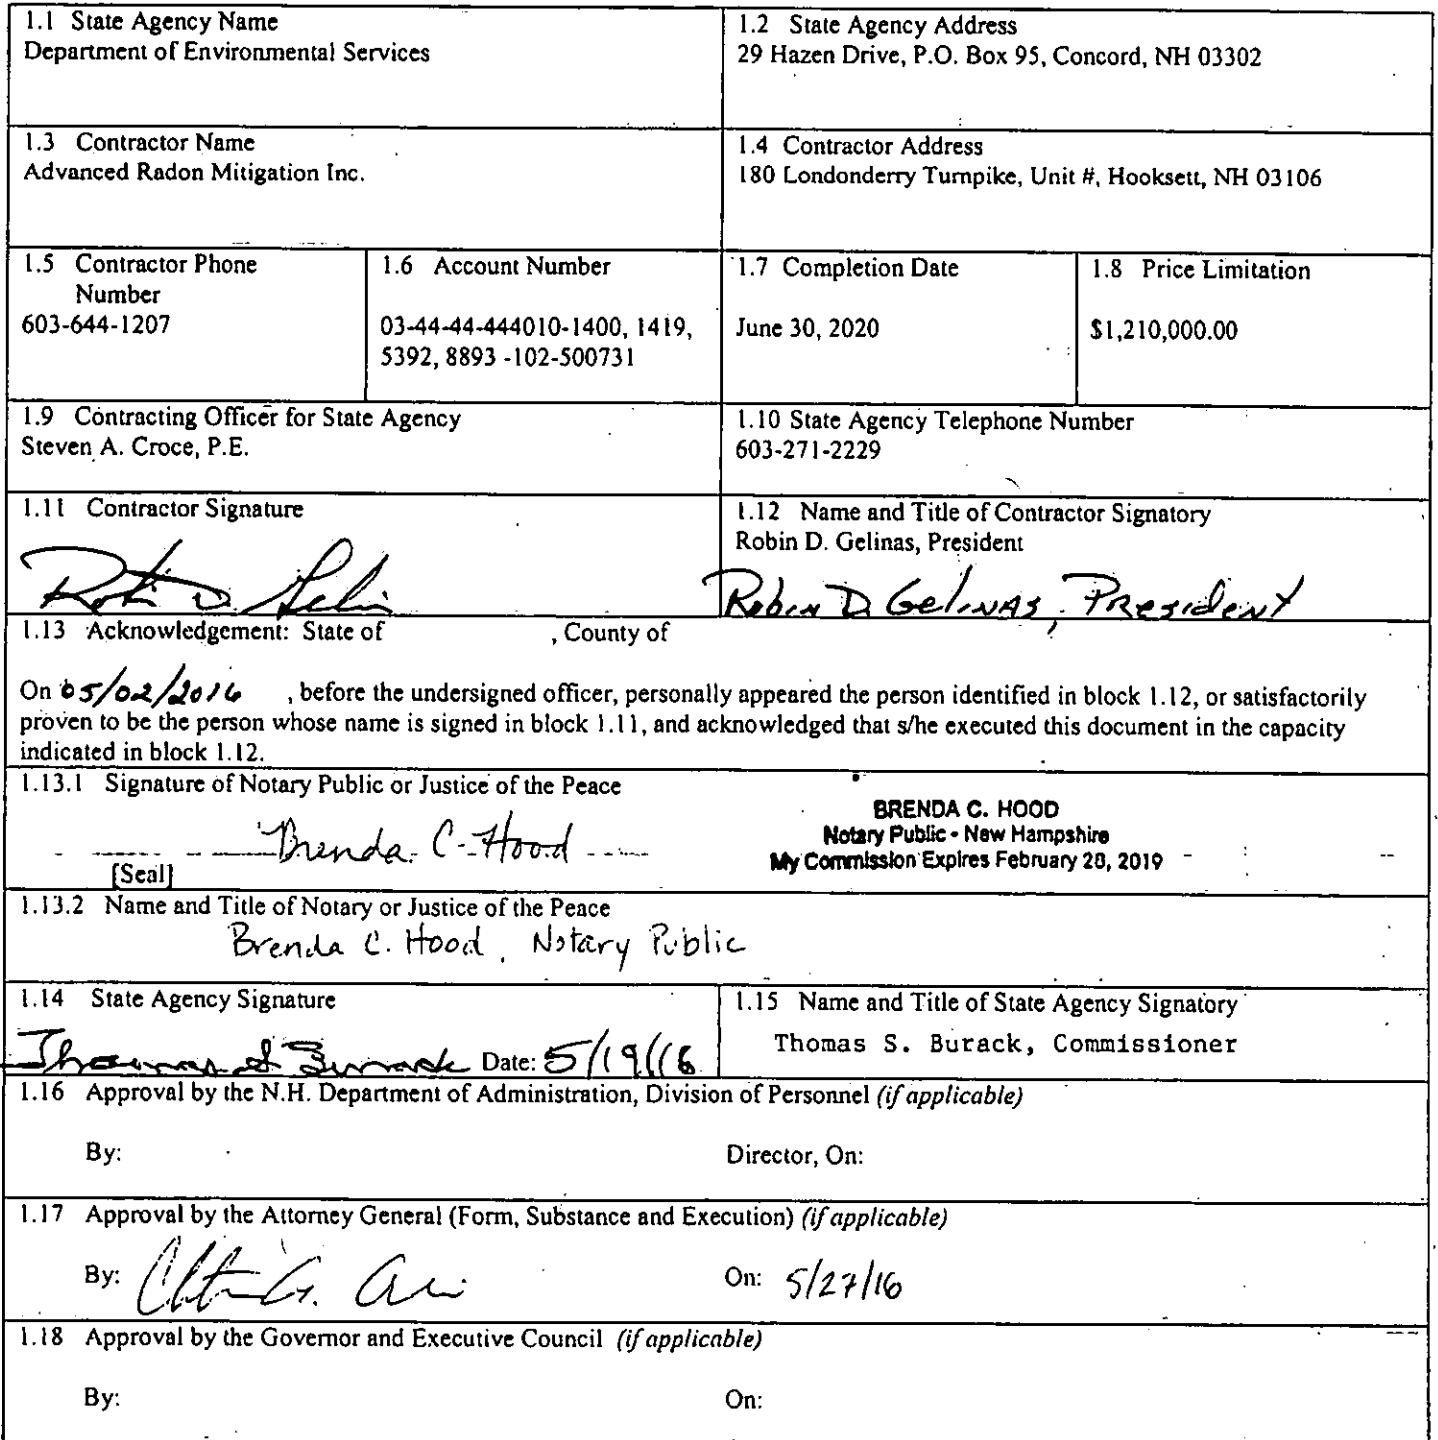 1.1 State Agency Name
Department of Environmental Services
1.2 State Agency Address
29 Hazen Drive, P.O. Box 95, Concord, NH 03302
1.3 Contractor Name
Advanced Radon Mitigation Inc.
1.4 Contractor Address
180 Londonderry Turnpike, Unit #, Hooksett, NH 03106
1.5 Contractor Phone
Number
603-644-1207
1.6 Account Number
03-44-44-444010-1400, 1419,
5392, 8893 -102-500731
1.7 Completion Date
June 30, 2020
1.8 Price Limitation
$1,210,000.00
1.9 Contracting Officer for State Agency
Steven A. Croce, P.E.
1.10 State Agency Telephone Number
603-271-2229
1.11 Contractor Signature
1.12 Name and Title of Contractor Signatory
Robin D. Gelinas, President
Robin D Gelinas, President
1.13 Acknowledgement: State of , County of
On 05/02/2016 , before the undersigned officer, personally appeared the person identified in block 1.12, or satisfactorily
proven to be the person whose name is signed in block 1.11, and acknowledged that s/he executed this document in the capacity
indicated in block 1.12.
1.13.1 Signature of Notary Public or Justice of the Peace
Brenda C. Hood
[Seal]
BRENDA C. HOOD
Notary Public - New Hampshire
My Commission Expires February 20, 2019
1.13.2 Name and Title of Notary or Justice of the Peace
Brenda C. Hood, Notary Public
1.14 State Agency Signature
Thomas S Burack Date: 5/19/16
1.15 Name and Title of State Agency Signatory
Thomas S. Burack, Commissioner
1.16 Approval by the N.H. Department of Administration, Division of Personnel (if applicable)
By: Director, On:
1.17 Approval by the Attorney General (Form, Substance and Execution) (if applicable)
By: On: 5/27/16
1.18 Approval by the Governor and Executive Council (if applicable)
By: On: